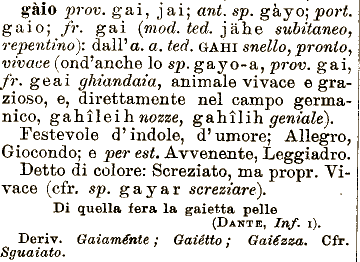 gàio prov. gai, jai; ant. sp. gàyo; port.
gaio; fr. gai (mod. ted. jähe subitaneo,
repentino): dall'a. a. ted. GAHI snello, pronto,
vivace (ond'anche lo sp. gayo-a, prov. gai,
fr. geai ghiandaia, animale vivace e gra-
zioso, e, direttamente nel campo germa-
nico, gahîleih nozze, gahîlih geniale).
Festevole d'indole, d'umore; Allegro,
Giocondo; e per est. Avvenente, Leggiadro.
Detto di colore: Screziato, ma propr. Vi-
vace (cfr. sp. gayar screziare).
Di quella fera la gaietta pelle
(DANTE, Inf. I).
Deriv. Gaiaménte; Gaiétto; Gaiézza. Cfr.
Sguaiato.